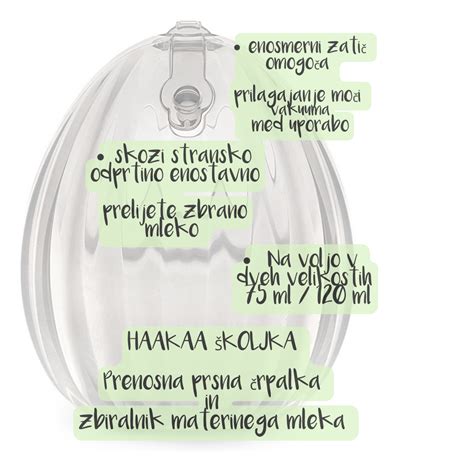 • enosmerni zatič
omogoča
prilagajanje moči
vakuuma
med uporabo
• skozi stransko
odprtino enostavno
prelijete zbrano
mleko
• Na voljo v
dveh velikostih
75 ml / 120 ml
HAAKAA ŠKOLJKA
Prenosna prsna črpalka
in
zbiralnik materinega mleka